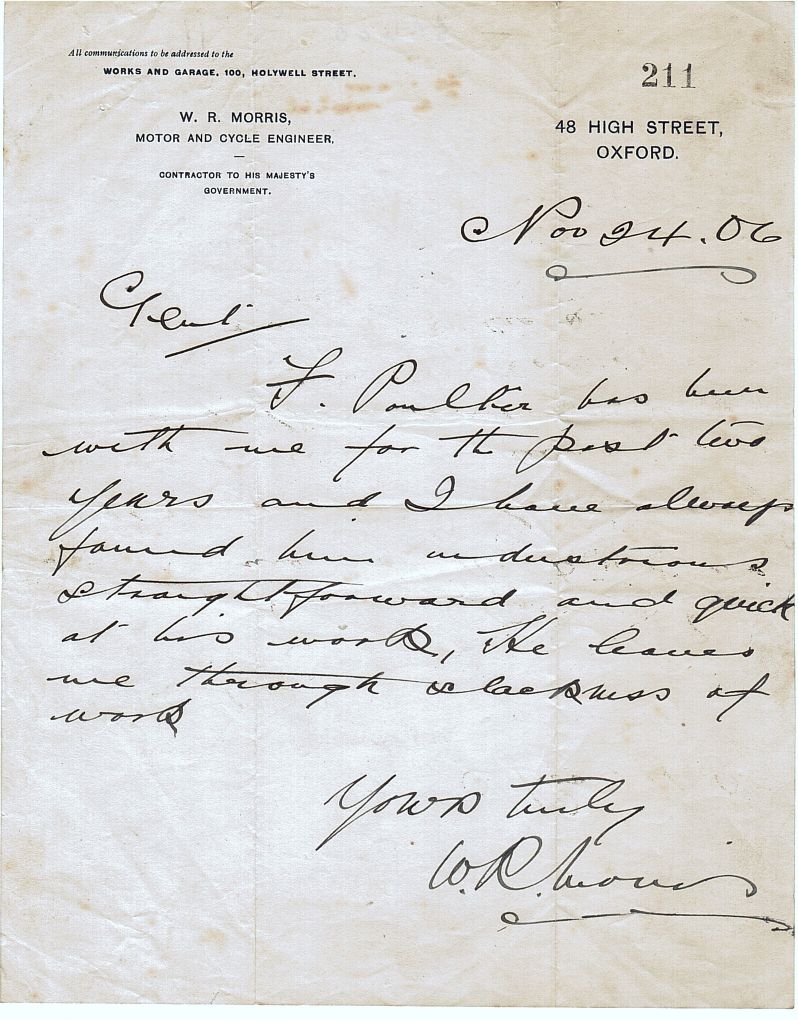 All communications to be addressed to the
WORKS AND GARAGE, 100, HOLYWELL STREET.
211
W. R. MORRIS,
MOTOR AND CYCLE ENGINEER,
CONTRACTOR TO HIS MAJESTY'S
GOVERNMENT.
48 HIGH STREET,
OXFORD.
Nov 24. 06
Gent
F. Poulter has been
with me for the past two
years and I have always
found him industrious
straightforward and quick
at his work, He leaves
me through slackness of
work
Yours truly
W.R. Morris